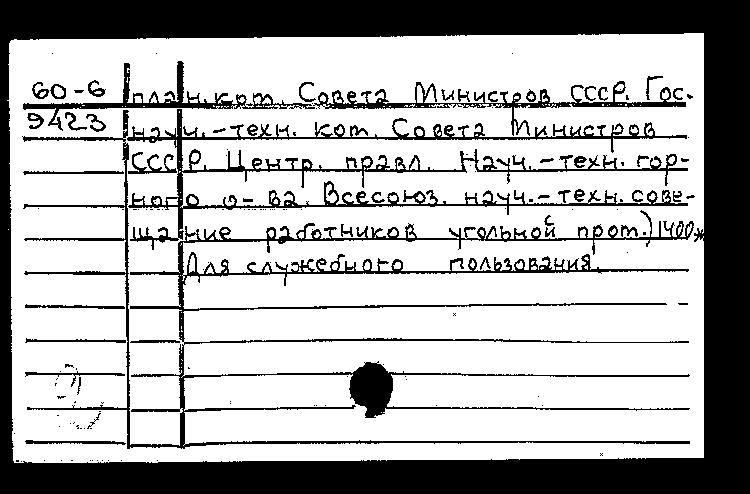 60-6 план.кот. Совета Министров СССР. Гос.
9423 науч.-техн. кот. Совета Министров
СССР. Центр. правл. Науч.-техн. гор-
ного о-ва. Всесоюз. науч.-техн. сове-
щание работников угольной прот.) 1400
Для служебного пользования.